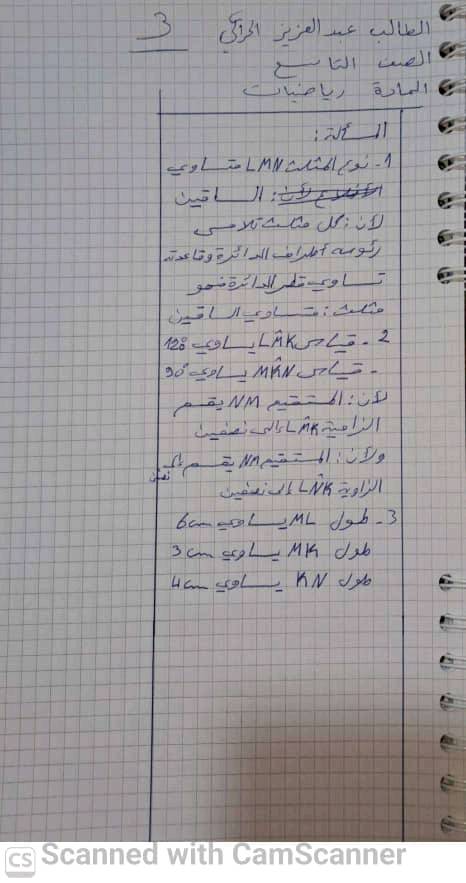 الطالب عبد العزيز الحراكي
3
الصف التاسع
المادة رياضيات
المسألة:
1- نوع المثلث LMN متساوي
الأضلاع لأن: الساقين
لأن: كل مثلث تلامس
رئوسه أطراف الدائرة وقاعدته
تساوي قطر الدائرة فهو
مثلث: متساوي الساقين
2- قياس LM̂K يساوي 120°
- قياس MK̂N يساوي 90°
لأن: المستقيم NM يقسم
الزاوية LM̂K إلى نصفين
ولأن: المستقيم NM يقسم إلى نصفين
الزاوية LN̂K إلى نصفين
3- طول ML يساوي 6cm
طول MK يساوي 3cm
طول KN يساوي 4cm
CS Scanned with CamScanner